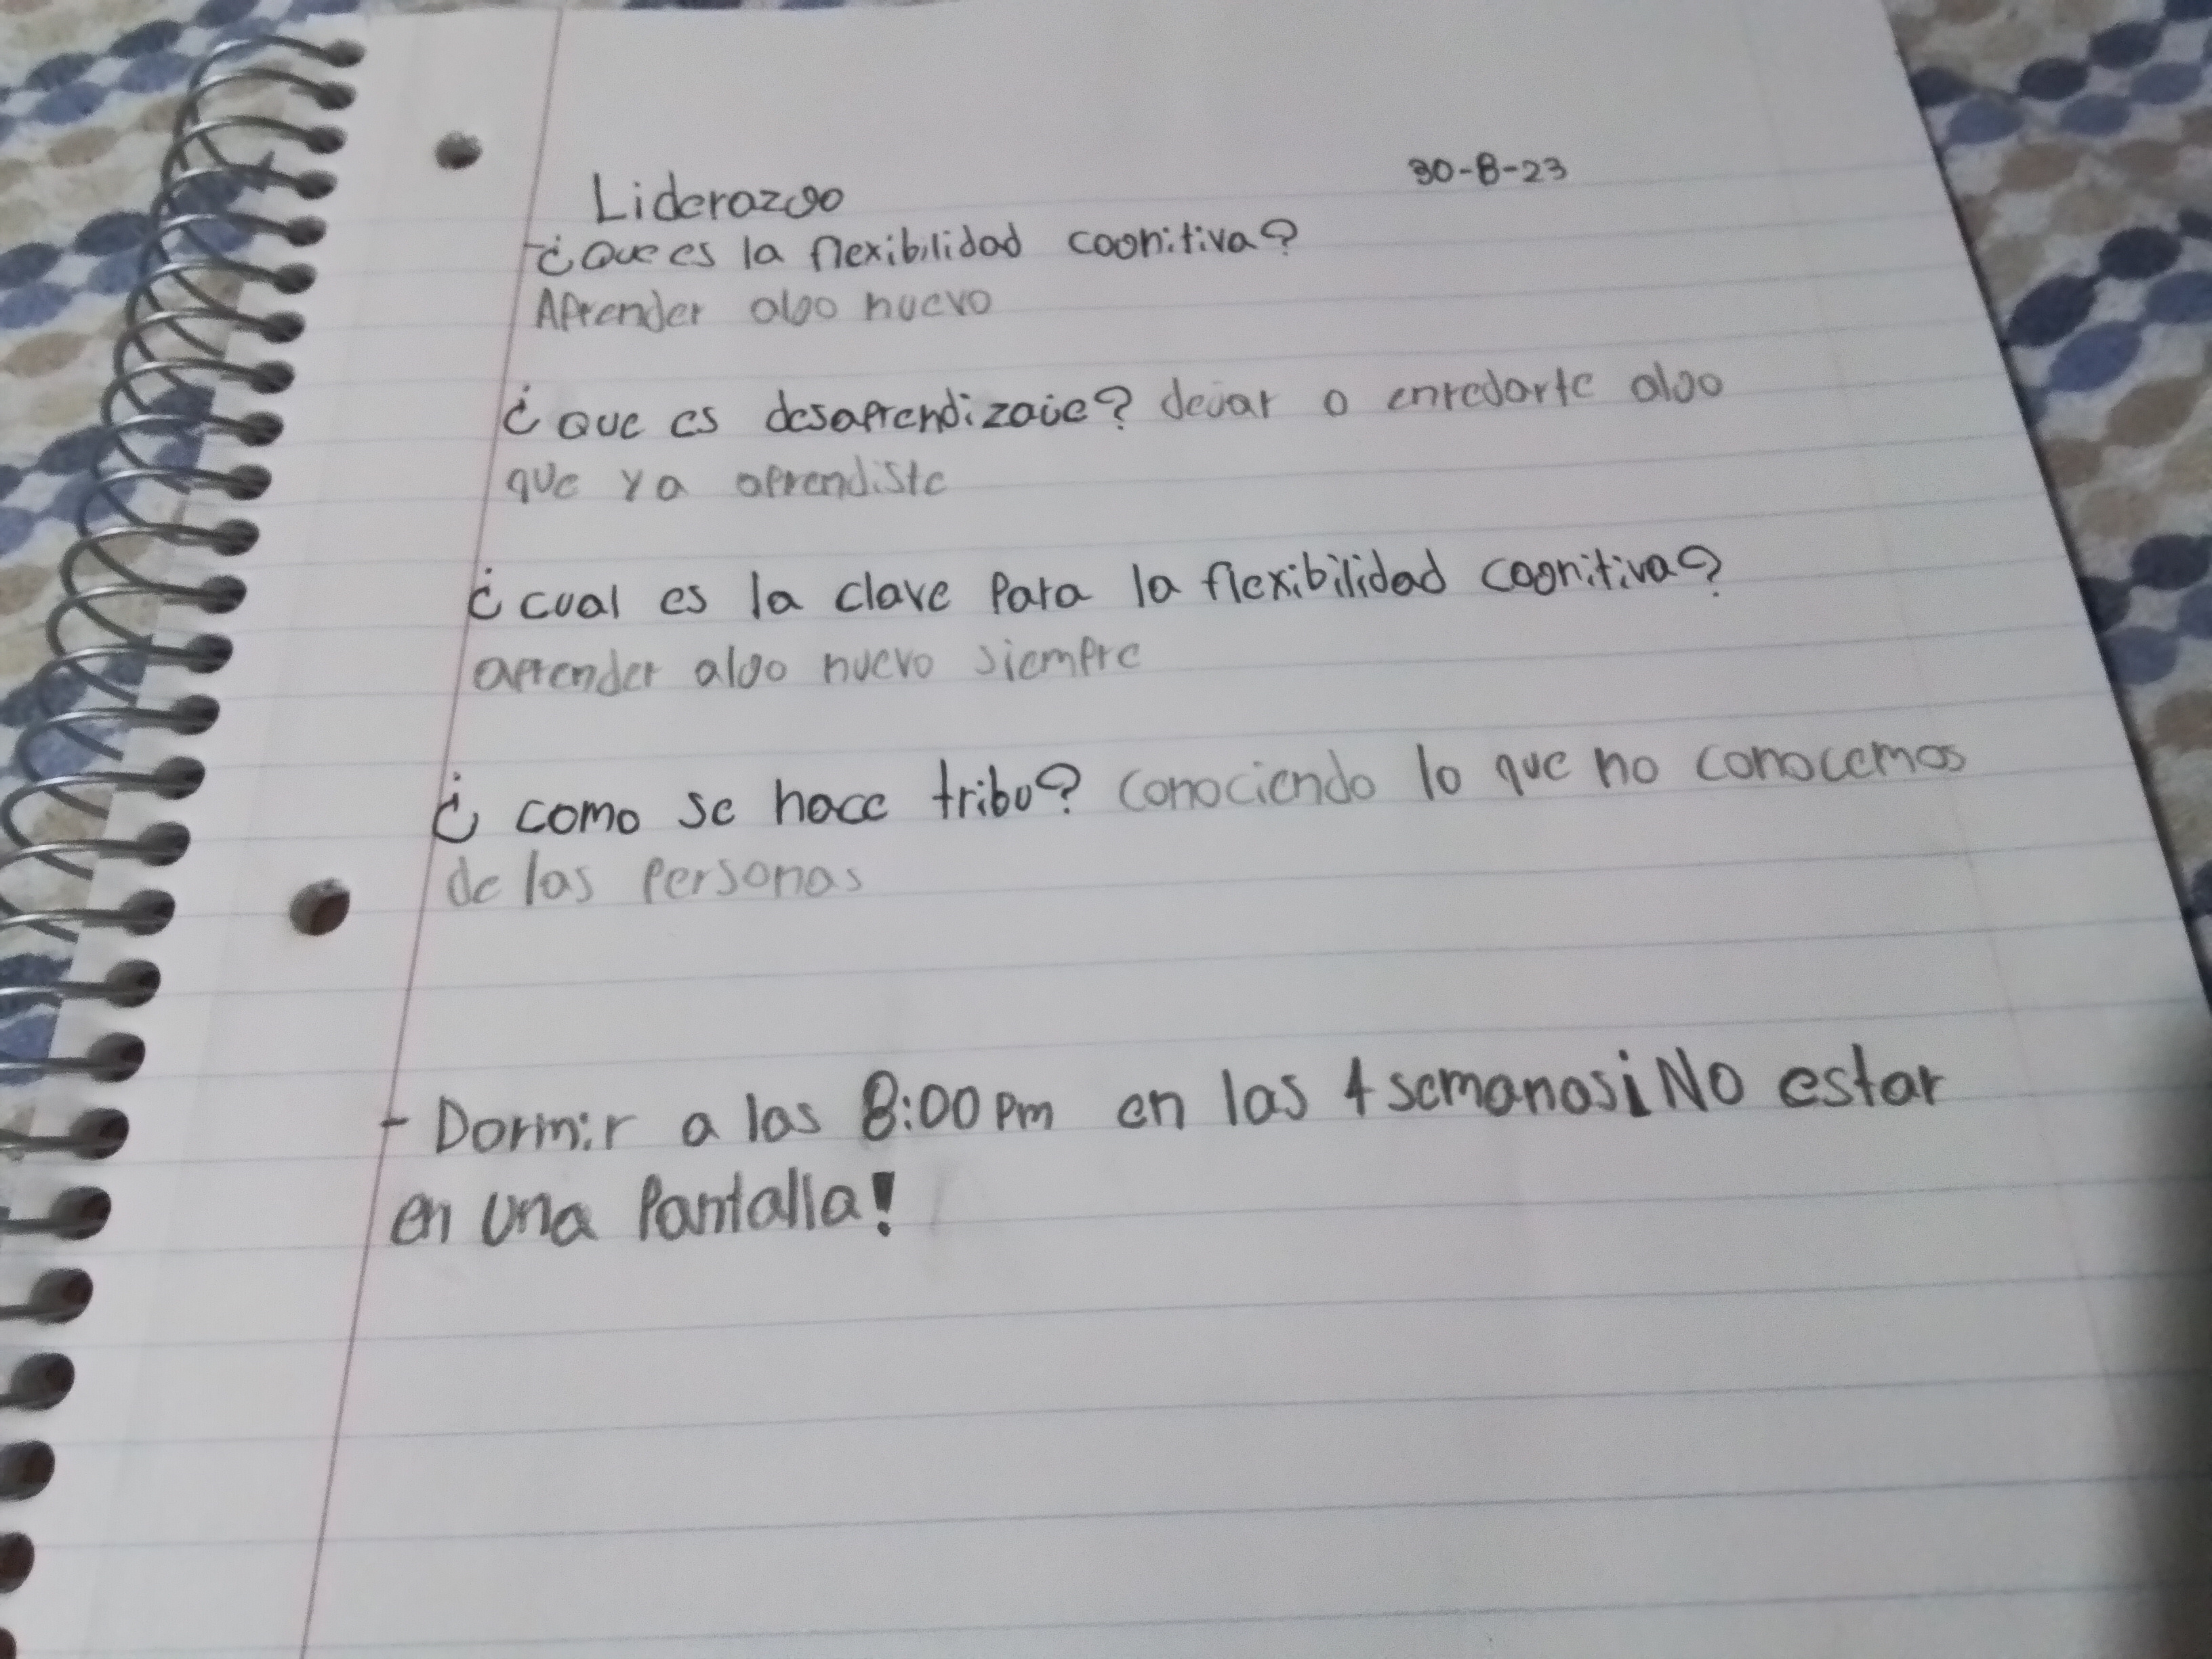 Liderazgo 30-8-23
-¿Que es la flexibilidad cognitiva?
Aprender algo nuevo
¿que es desaprendizaje? dejar o enredarte algo
que ya aprendiste
¿cual es la clave para la flexibilidad cognitiva?
aprender algo nuevo siempre
¿como se hace tribu? conociendo lo que no conocemos
de las personas
- Dormir a las 8:00 pm en las 4 semanas ¡No estar
en una pantalla!